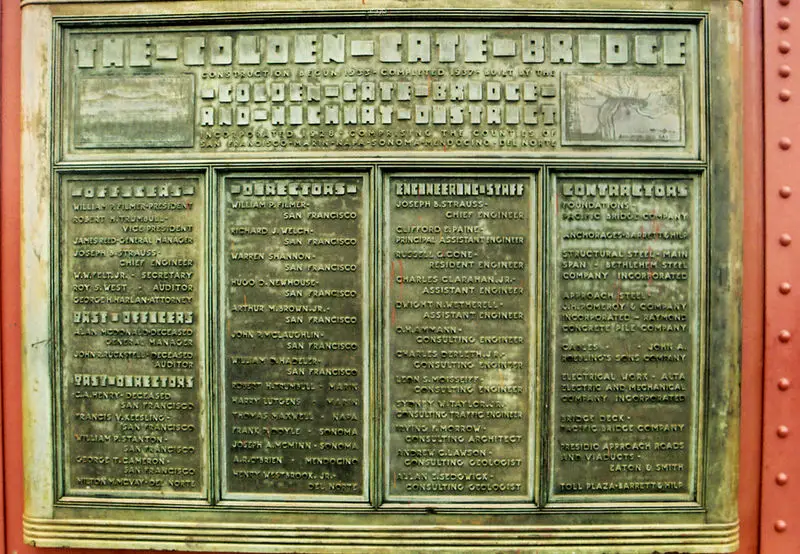 THE-GOLDEN-GATE-BRIDGE
CONSTRUCTION BEGUN 1933-COMPLETED 1937-BUILT BY THE
-GOLDEN-GATE-BRIDGE-
AND-HIGHWAY-DISTRICT
INCORPORATED 1928-COMPRISING THE COUNTIES OF
SAN FRANCISCO-MARIN-NAPA-SONOMA-MENDOCINO-DEL NORTE
-OFFICERS-
WILLIAM P. FILMER-PRESIDENT
ROBERT H. TRUMBULL-
VICE PRESIDENT
JAMES REED-GENERAL MANAGER
JOSEPH B. STRAUSS-
CHIEF ENGINEER
W.W. FELT, JR. - SECRETARY
ROY S. WEST - AUDITOR
GEORGE H. HARLAN-ATTORNEY
PAST-OFFICERS
ALAN MCDONALD-DECEASED
GENERAL MANAGER
JOHN R. RUCKSTELL-DECEASED
AUDITOR
PAST-DIRECTORS
C.A. HENRY-DECEASED
SAN FRANCISCO
FRANCIS V. KEESLING-
SAN FRANCISCO
WILLIAM P. STANTON-
SAN FRANCISCO
GEORGE T. CAMERON-
SAN FRANCISCO
MILTON M. MCVAY-DEL NORTE
-DIRECTORS-
WILLIAM P. FILMER-
SAN FRANCISCO
RICHARD J. WELCH-
SAN FRANCISCO
WARREN SHANNON-
SAN FRANCISCO
HUGO D. NEWHOUSE-
SAN FRANCISCO
ARTHUR M. BROWN, JR.-
SAN FRANCISCO
JOHN P. MCLAUGHLIN-
SAN FRANCISCO
WILLIAM D. HADELER-
SAN FRANCISCO
ROBERT H. TRUMBULL - MARIN
HARRY LUTGENS - MARIN
THOMAS MAXWELL - NAPA
FRANK P. DOYLE - SONOMA
JOSEPH A. MCMINN-SONOMA
A.R. O'BRIEN - MENDOCINO
HENRY WESTBROOK, JR.-
DEL NORTE
ENGINEERING-STAFF
JOSEPH B. STRAUSS-
CHIEF ENGINEER
CLIFFORD E. PAINE-
PRINCIPAL ASSISTANT ENGINEER
RUSSELL G. CONE-
RESIDENT ENGINEER
CHARLES CLARAHAN, JR.-
ASSISTANT ENGINEER
DWIGHT N. WETHERELL-
ASSISTANT ENGINEER
O.H. AMMANN-
CONSULTING ENGINEER
CHARLES DERLETH, JR.-
CONSULTING ENGINEER
LEON S. MOISSEIFF-
CONSULTING ENGINEER
SYDNEY W. TAYLOR, JR.-
CONSULTING TRAFFIC ENGINEER
IRVING F. MORROW-
CONSULTING ARCHITECT
ANDREW C. LAWSON-
CONSULTING GEOLOGIST
ALLAN E. SEDGWICK-
CONSULTING GEOLOGIST
CONTRACTORS
FOUNDATIONS-
PACIFIC BRIDGE COMPANY
ANCHORAGES-BARRETT & HILP
STRUCTURAL STEEL-MAIN
SPAN - BETHLEHEM STEEL
COMPANY INCORPORATED
APPROACH STEEL-
J.H. POMEROY & COMPANY
INCORPORATED - RAYMOND
CONCRETE PILE COMPANY
CABLES - JOHN A.
ROEBLING'S SONS COMPANY
ELECTRICAL WORK - ALTA
ELECTRIC AND MECHANICAL
COMPANY INCORPORATED
BRIDGE DECK-
PACIFIC BRIDGE COMPANY
PRESIDIO APPROACH ROADS
AND VIADUCTS-
EATON & SMITH
TOLL PLAZA-BARRETT & HILP